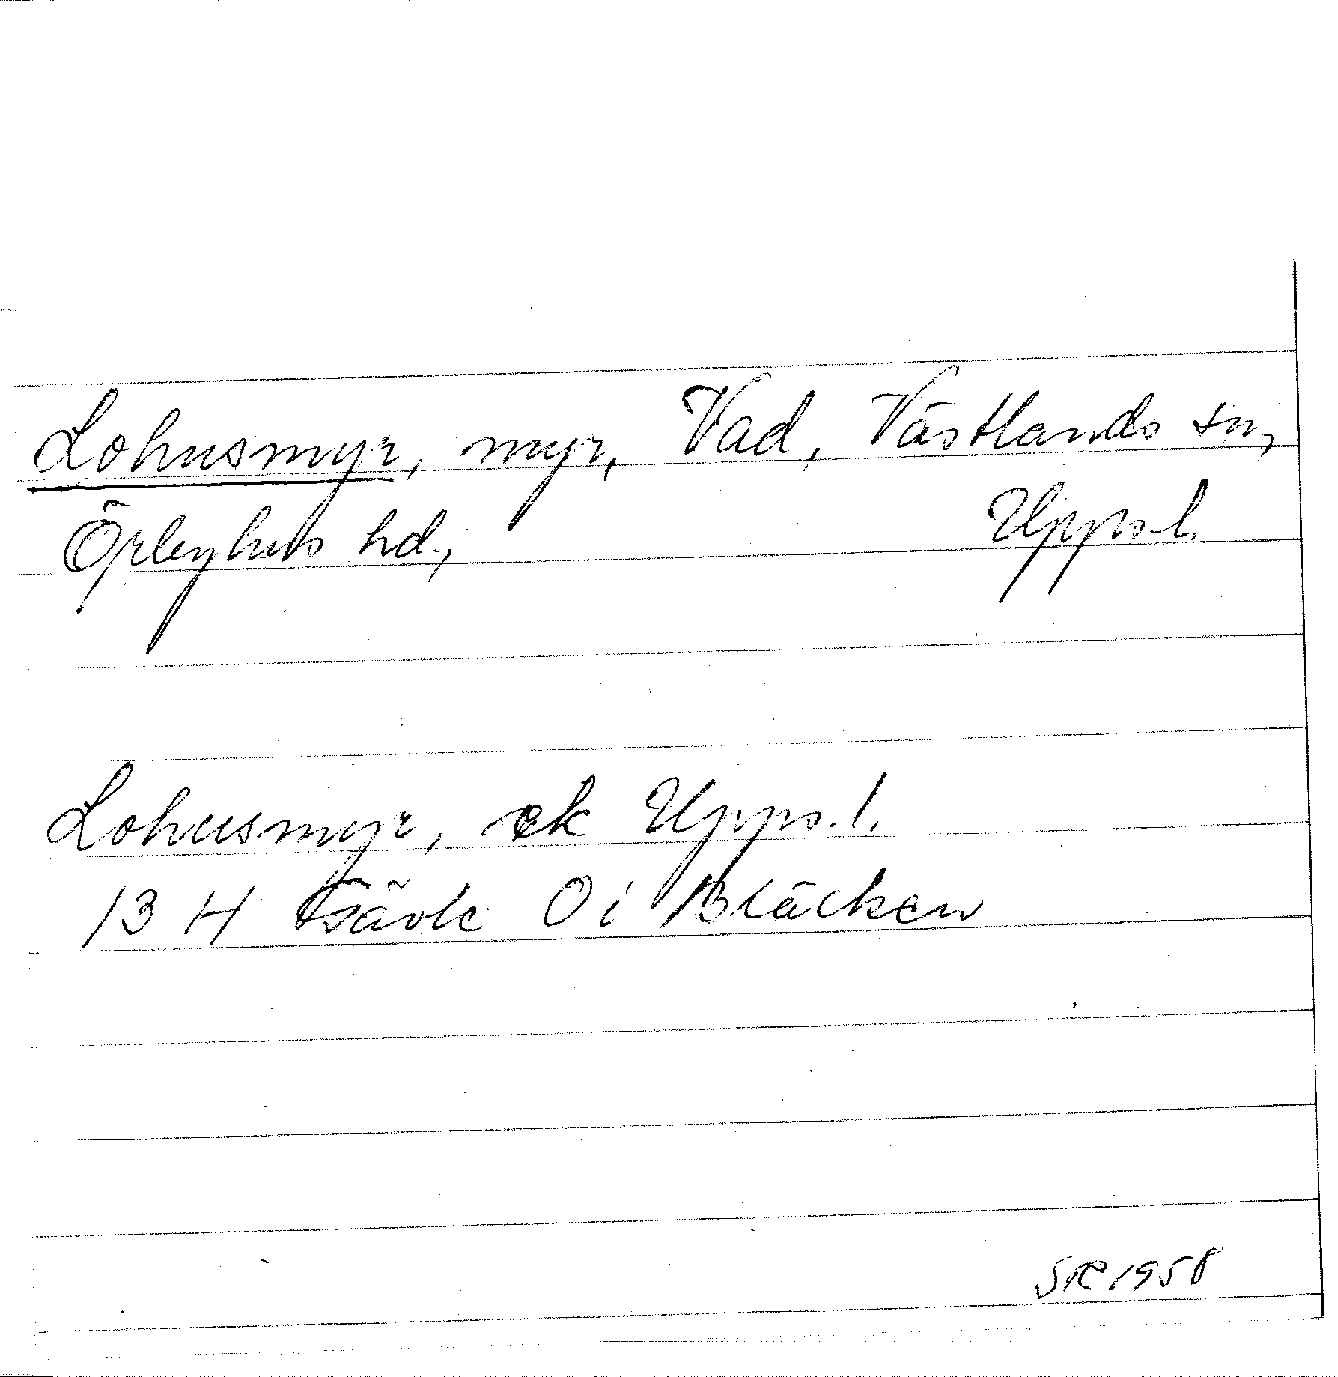 Lohusmyr, myr, Vad, Västlands sn,
Örbyhus hd, Upps.l.
Lohusmyr, ek Upps.l.
13 H Gävle Oi Bläcken
SR 1958